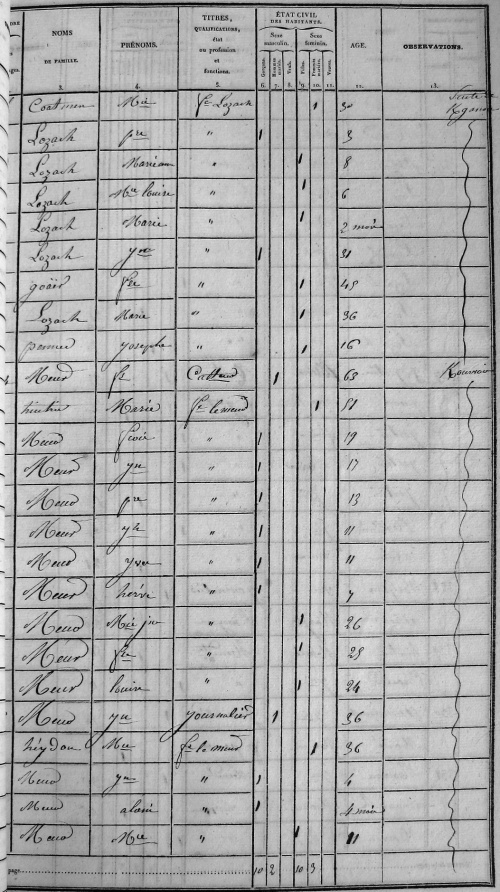 NOMS DE FAMILLE. PRÉNOMS. TITRES, QUALIFICATIONS, état ou profession et fonctions. ÉTAT CIVIL DES HABITANTS. AGE. OBSERVATIONS.
Sexe masculin. Sexe féminin.
Garçons. Hommes mariés. Veufs. Filles. Femmes mariées. Veuves.
3. 4. 5. 6. 7. 8. 9. 10. 11. 12. 13.
Coatmen Mie fe Lozach 1 30
Lozach pre " 1 3
Lozach Marie " 1 8
Lozach Mie louise " 1 6
Lozach Marie " 1 2 mois
Lozach yves " 1 31
goäer fse " 1 45
Lozach Marie " 1 36
penner josephe " 1 16
Meur fs 1 63
Marie fe le meur 1 51
Meur " 1 19
Meur yn " 1 17
Meur pre " 1 13
Meur " 1 11
Meur yves " 1 11
Meur hervé " 1 7
Meur Mie jne " 1 26
Meur fse " 1 25
Meur louise " 1 24
Meur yn journalier 1 36
héydon Mie fe le meur 1 36
Meur yn " 1 4
Meur alain " 1 4 mois
Meur Mie " 1 11
page 10 2 10 3